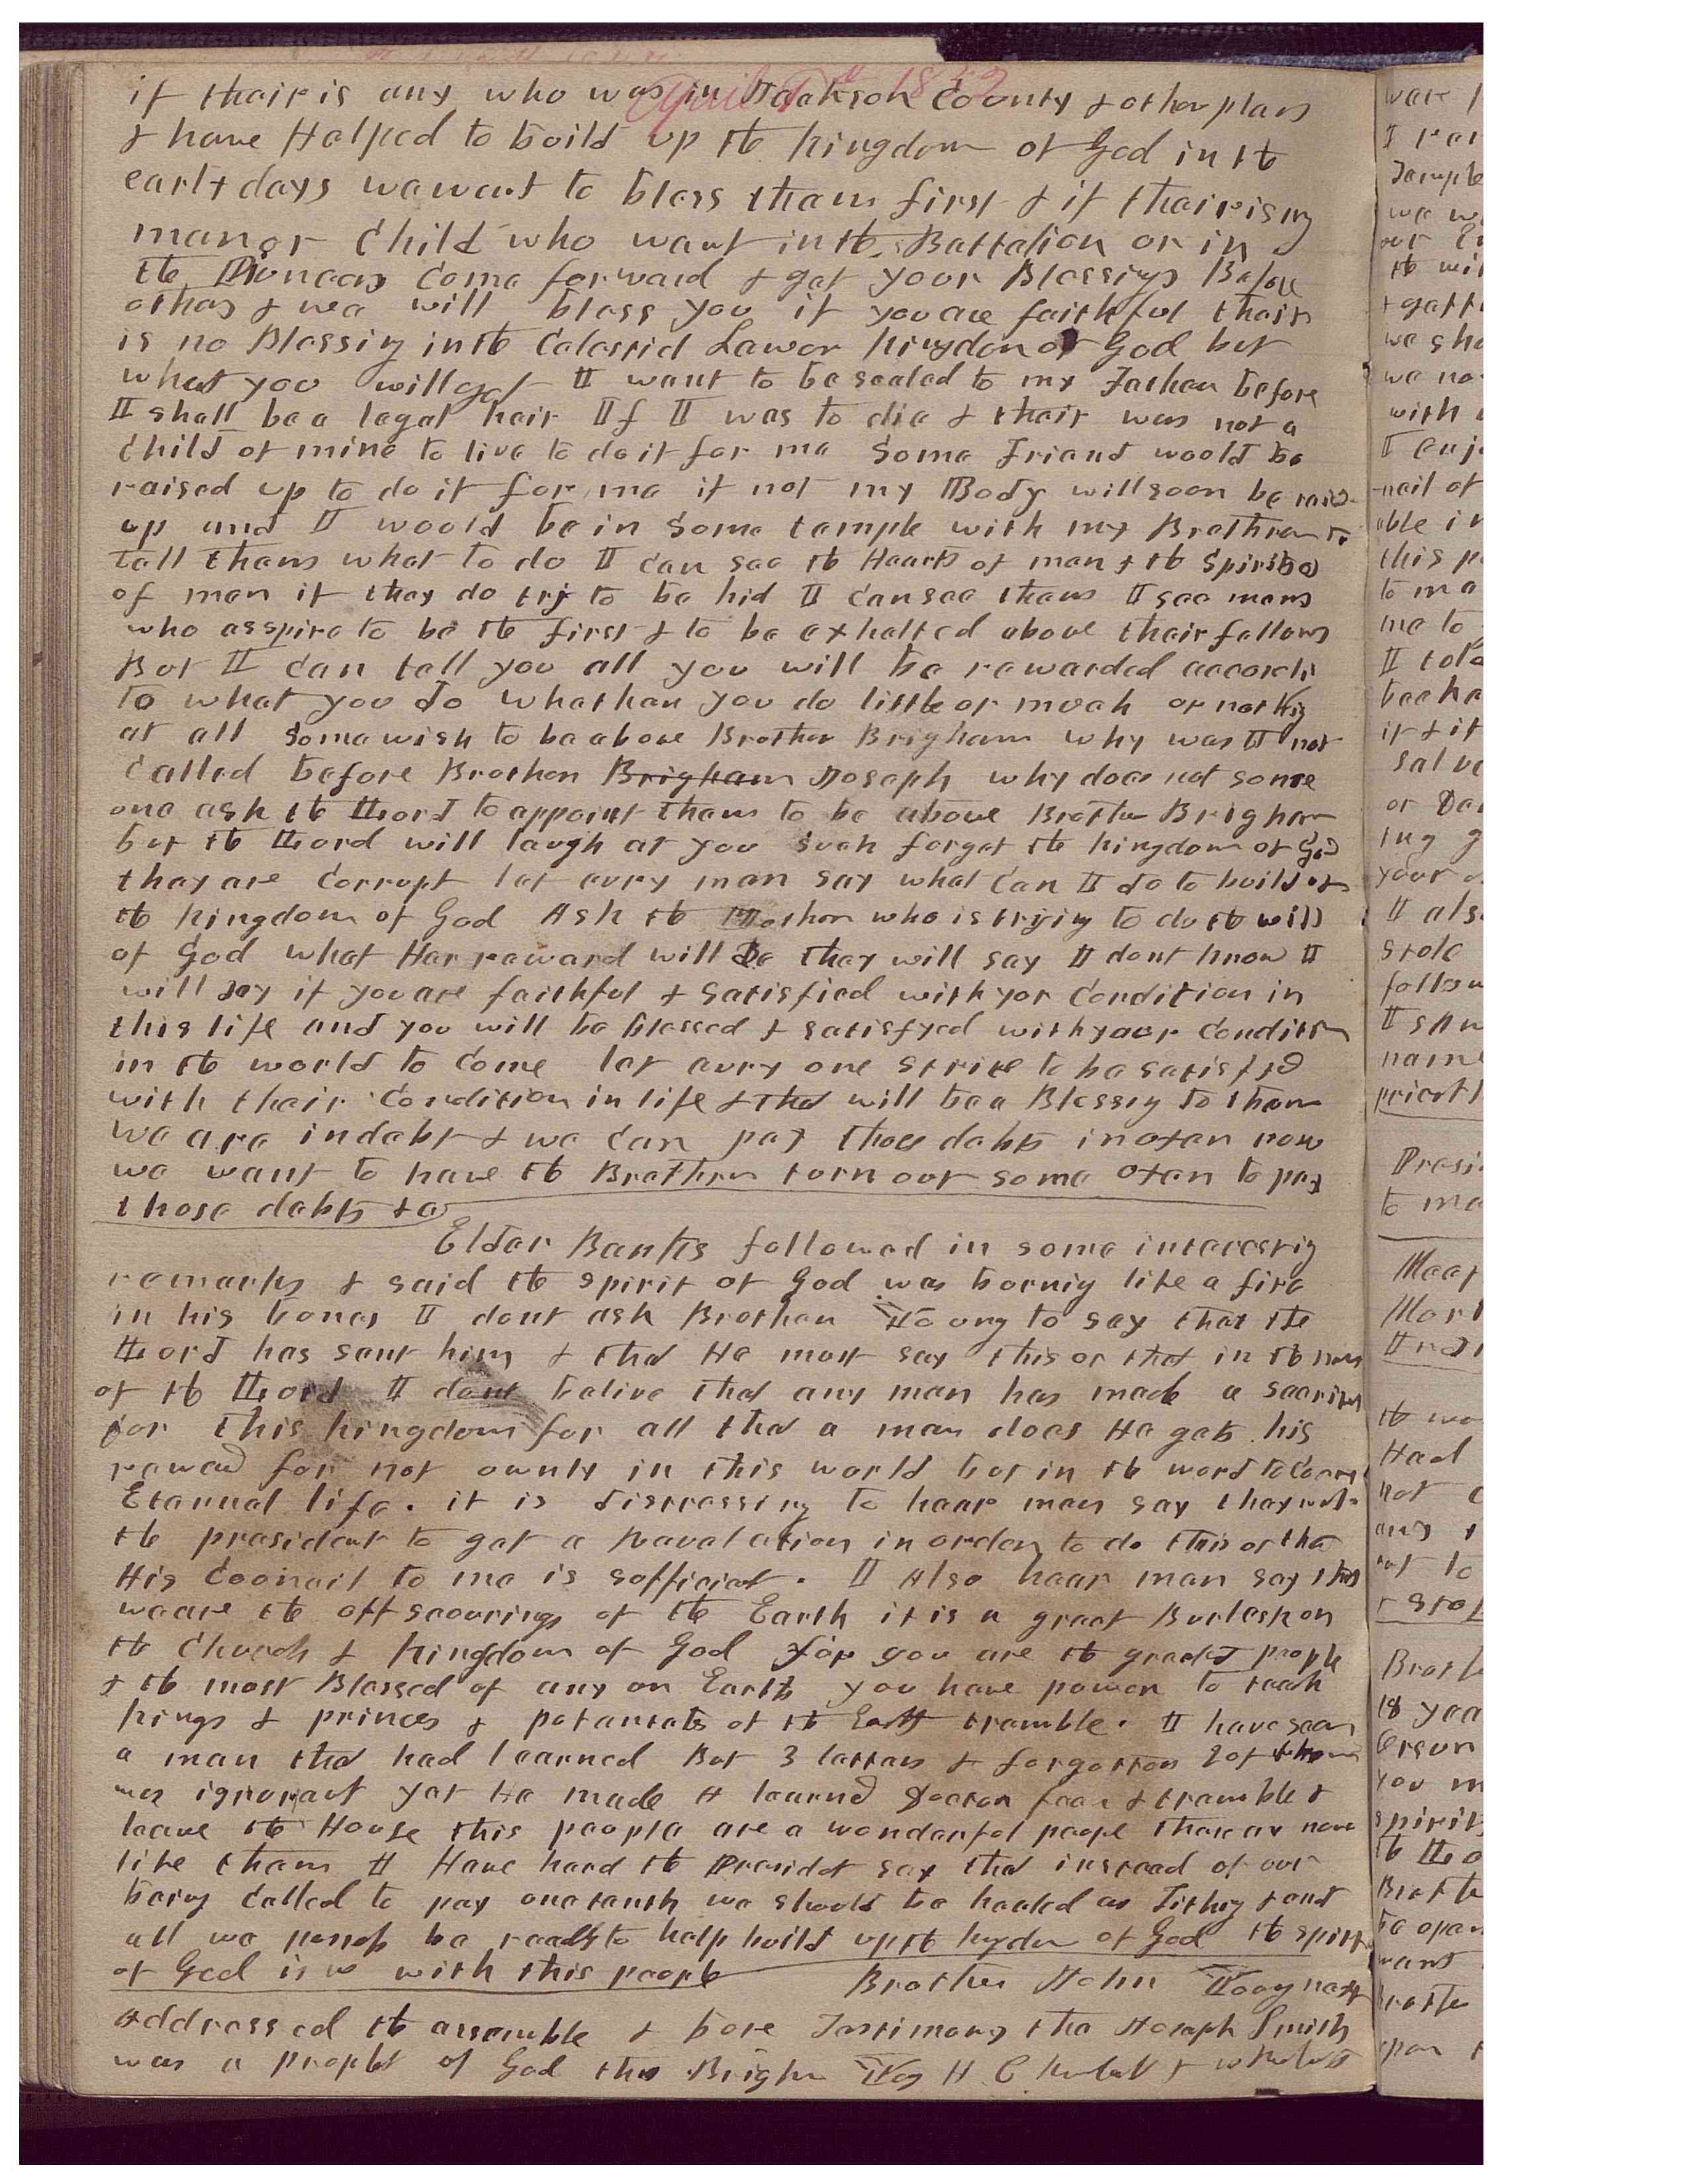 April 7th 1852
if thair is any who was in Jackson County & other plars
& have Helped to build up the kingdom of God in the
early days we want to bless them first & if thair is any
man or Child who want in the Battalion or in
the Pioneers Come forward & get your Blessings Before
others & wee will bless you if you are faithful thair
is no Blessing in the Celestial Law or kingdom of God but
what you will get I want to be sealed to my Father before
I shall be a legal heir If I was to die & thair was not a
Child of mine to live to do it for me Some Friend would be
raised up to do it for me if not my Body will soon be raised
up and I would be in Some temple with my Brethren to
tell them what to do I Can see the Hearts of men & the Spirits
of men if they do try to be hid I Can see them I see mens
who asspire to be the first & to be exhalted above their fellows
But I Can tell you all you will be rewarded accordi
to what you do whether you do little or much or nothig
at all Some wish to be above Brother Brigham why was I not
Called before Brother Brigham Joseph why does not some
one ask the Lord to appoint them to be above Brother Brigham
but the Lord will laugh at you Such forget the kingdom of God
they are Corrupt let evry man say what Can I do to build up
the kingdom of God Ask the Mother who is trying to do the will
of God what Her reward will be they will say I dont know I
will say if you are faithful & Satisfied with yor Condition in
this life and you will be blessed & satisfyed with your Condition
in the world to Come let evry one strive to be satisfyd
with thair Condition in life & that will be a Blessig to them
we are in debt & we Can pay those debts in oxen now
we want to have the Brethren turn out some oxen to pay
those debts &c
Elder Banks followed in some interestig
remarks & said the spirit of God was burnig like a fire
in his bones I dont ask Brother Young to say that the
Lord has sent him & that He must say this or that in the name
of the Lord I dont belive that any man has made a sacrifice
for this kingdom for all that a man does He gets his
reward for not ownly in this world but in the word to Come
Eternal life. it is distressing to hear men say they want
the president to get a Revelation in order to do this or that
His Council to me is sufficient. I Also hear men say that
we are the offscourings of the Earth it is a great Burlesk on
the Church & kingdom of God for you are the greatest people
& the most Blessed of any on Earth you have power to teach
kings & princes & potentates of the Earth tremble. I have seen
a man that had learned But 3 letters & forgotten 2 of them
was ignorant yet He made A learned Doctor fear & tremble &
leave the House this people are a wonderful people there are none
like them I Have heard the President say that instead of our
being Called to pay one tenth we should be healed as Tithing & and
all we possess be ready to help build up the kingdom of God the spirit
of God is with this people Brother John Young next
addressed the assemble & bore Testimony tha Joseph Smith
was a prophet of God tha Brigham Young H C Kimball &